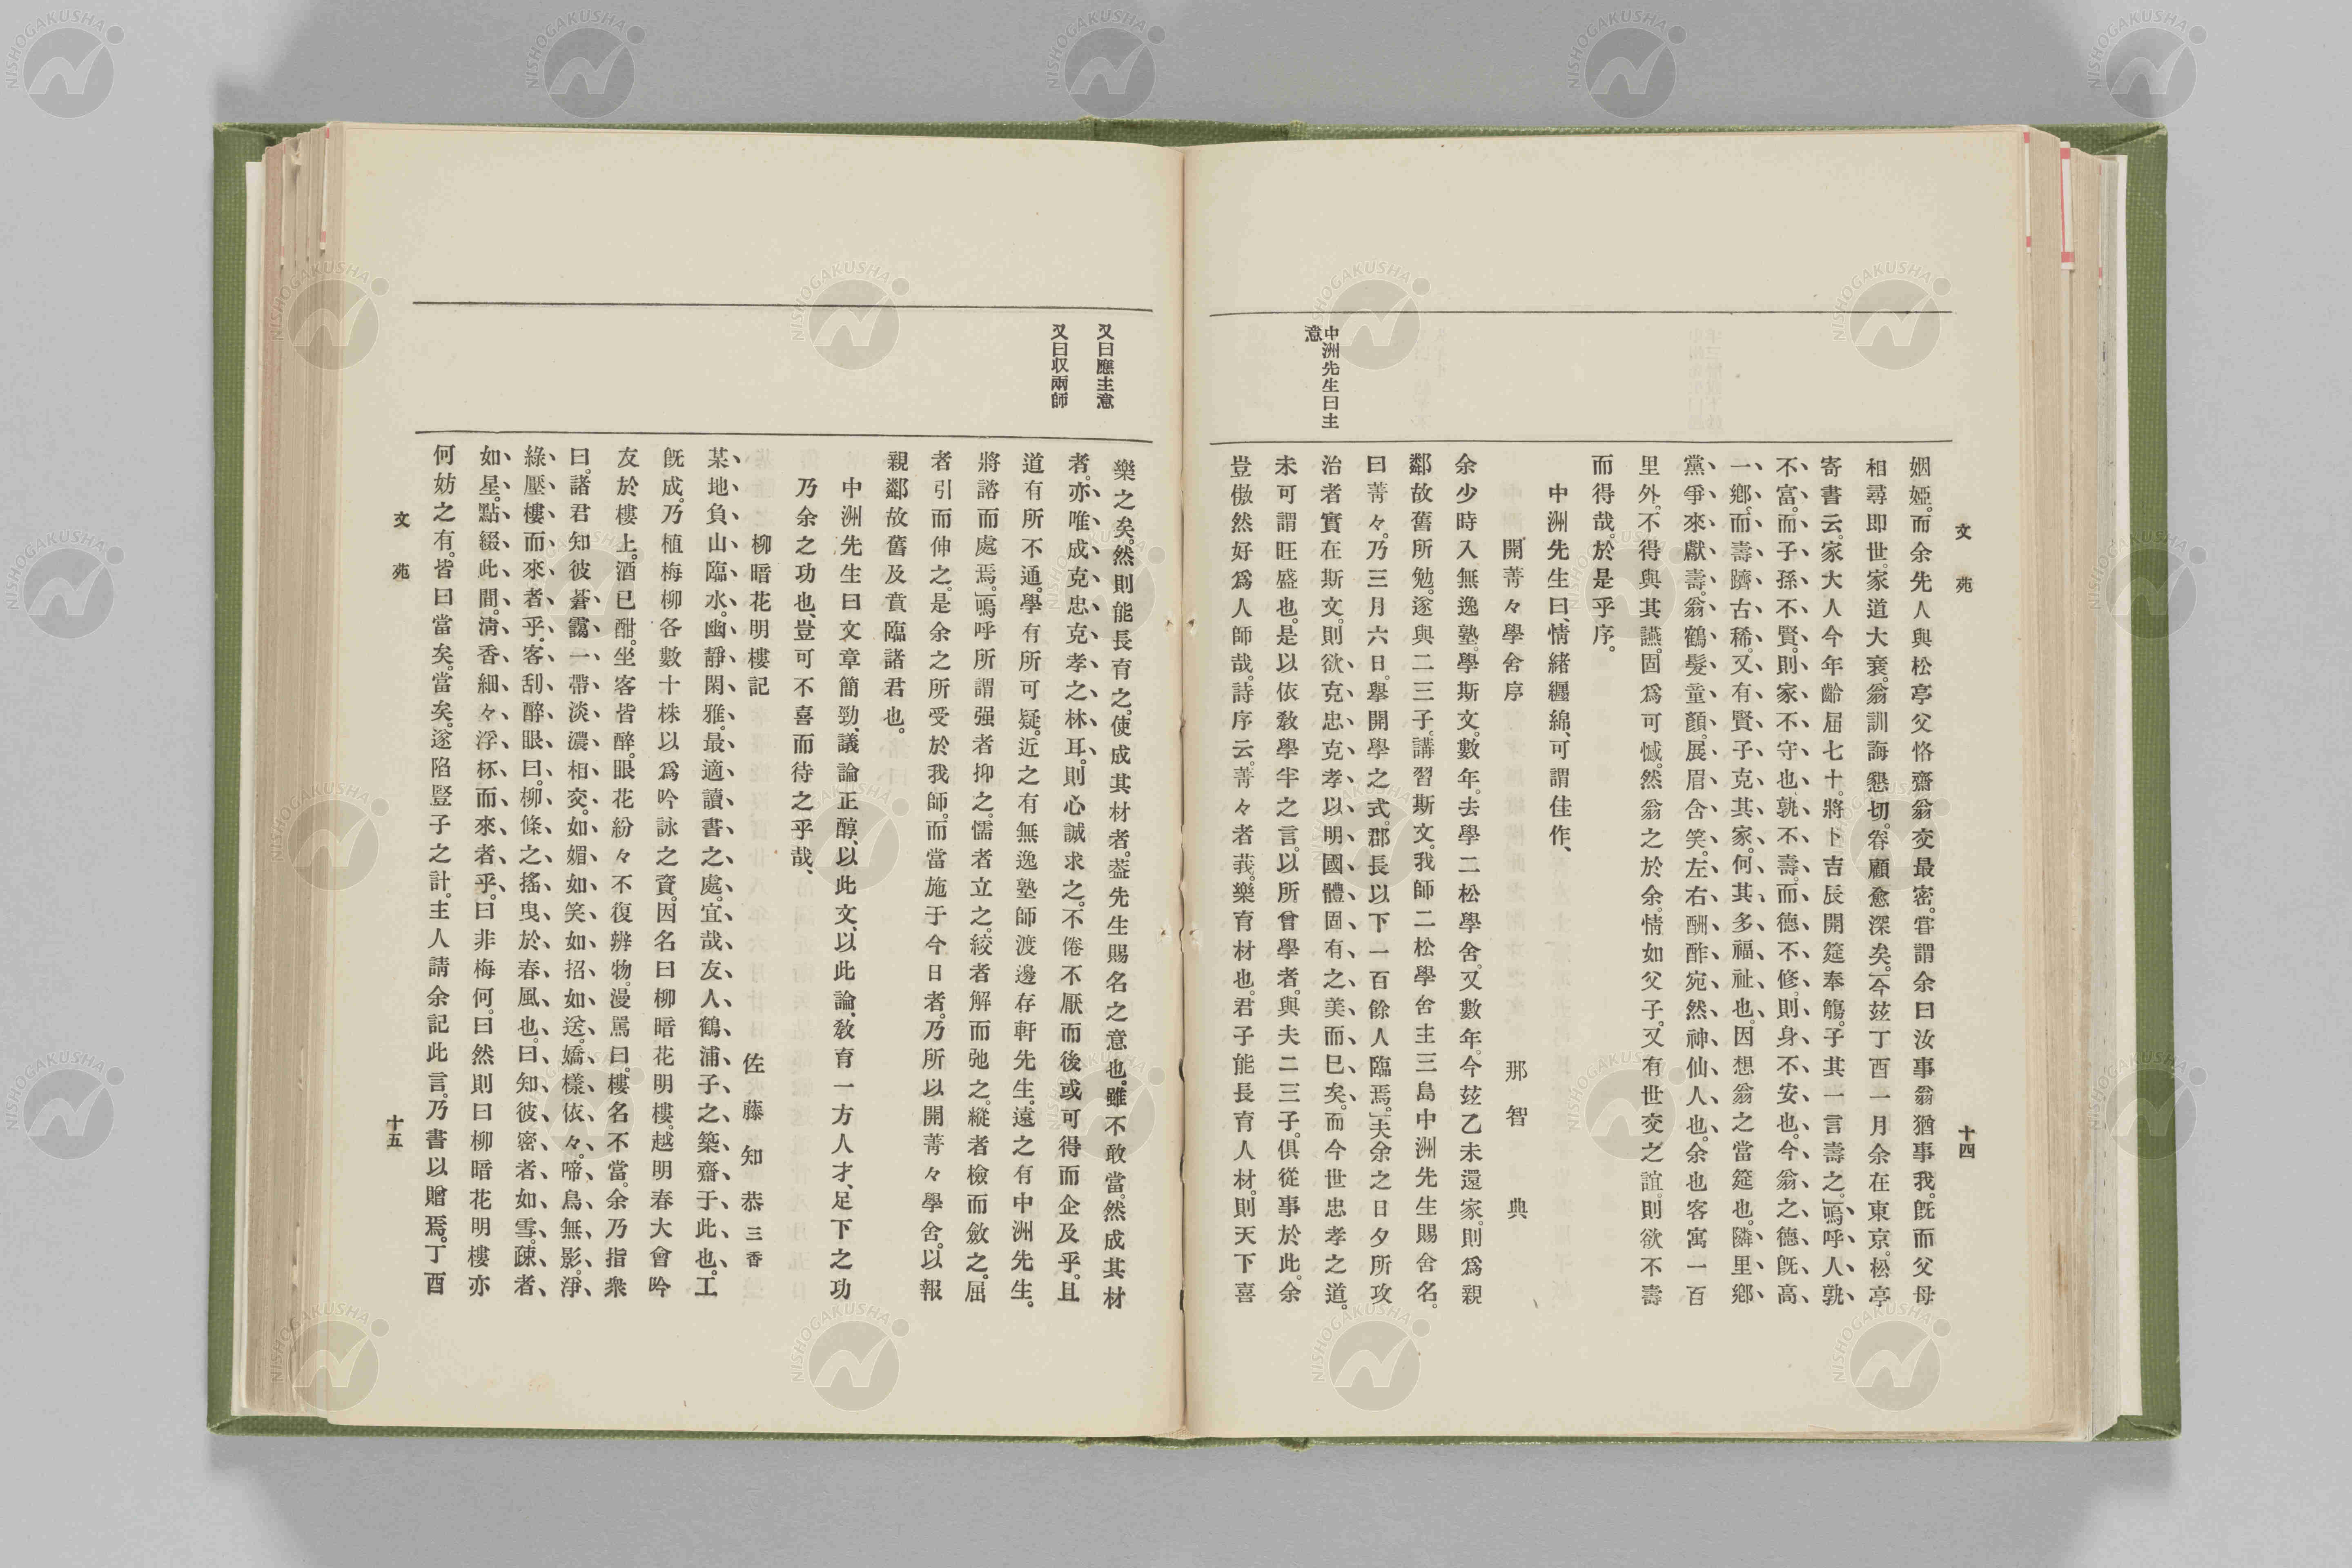 文苑
十四
姻婭。而余先人與松亭父恪齋翁交最密。甞謂余曰汝事翁猶事我。旣而父母
相尋即世。家道大衰。翁訓誨懇切。眷顧愈深矣。」今玆丁酉一月余在東京。松亭
寄書云。家大人今年齡屆七十。將卜吉辰開筵奉觴。子其一言壽之。」嗚呼、人孰
不富。而子孫不賢。則家不守也。孰不壽。而德不修。則身不安也。今翁之德旣高
一鄕。而壽躋古稀。又有賢子克其家。何其多福祉也。因想翁之當筵也。隣里鄕
黨爭來獻壽。翁鶴髮童顏。展眉含笑。左右酬酢宛然神仙人也。余也客寓一百
里外。不得與其讌。固爲可憾。然翁之於余。情如父子。又有世交之誼。則欲不壽
而得哉。於是乎序。
中洲先生曰、情緒纒綿、可謂佳作、
開菁々學舍序
那智典
余少時入無逸塾。學斯文。數年。去學二松學舍。又數年。今玆乙未還家。則爲親
鄰故舊所勉。遂與二三子。講習斯文。我師二松學舍主三島中洲先生賜舍名。
曰菁々。乃三月六日。擧開學之式。郡長以下一百餘人臨焉。」夫余之日夕所攻
中洲先生曰主
意
治者實在斯文。則欲克忠克孝以明國體固有之美而巳矣。而今世忠孝之道。
未可謂旺盛也。是以依敎學半之言。以所曾學者。與夫二三子。俱從事於此。余
豈傲然好爲人師哉。詩序云。菁々者莪。樂育材也。君子能長育人材。則天下喜
樂之矣。然則能長育之。使成其材者。葢先生賜名之意也。雖不敢當。然成其材
又曰應主意
者。亦唯成克忠克孝之林耳。則心誠求之。不倦不厭而後或可得而企及乎。且
又曰収兩師
道有所不通。學有所可疑。近之有無逸塾師渡邊存軒先生。遠之有中洲先生。
將諮而處焉。」嗚呼所謂强者抑之。懦者立之。絞者解而弛之。縱者檢而斂之。屈
者引而伸之。是余之所受於我師。而當施于今日者。乃所以開菁々學舍。以報
親鄰故舊及賁臨諸君也。
中洲先生曰文章簡勁、議論正醇、以此文、以此論、敎育一方人才、足下之功
乃余之功也、豈可不喜而待之乎哉、
柳暗花明樓記
佐藤知恭三香
某地負山臨水。幽靜閑雅。最適讀書之處。宜哉友人鶴浦子之築齋于此也。工
旣成。乃植梅柳各數十株以爲吟詠之資。因名曰柳暗花明樓。越明春大會吟
友於樓上。酒已酣。坐客皆醉。眼花紛々不復辨物。漫罵曰。樓名不當。余乃指衆
曰。諸君知彼蒼靄一帶淡濃相交。如媚如笑如招如送。嬌樣依々。啼鳥無影。淨
綠壓樓而來者乎。客刮醉眼曰。柳條之搖曳於春風也。曰。知彼密者如雪。疎者
如星。點綴此間。淸香細々浮杯而來者乎。曰非梅何。曰然則曰柳暗花明樓亦
何妨之有。皆曰當矣。當矣。遂陷豎子之計。主人請余記此言。乃書以贈焉。丁酉
文苑
十五